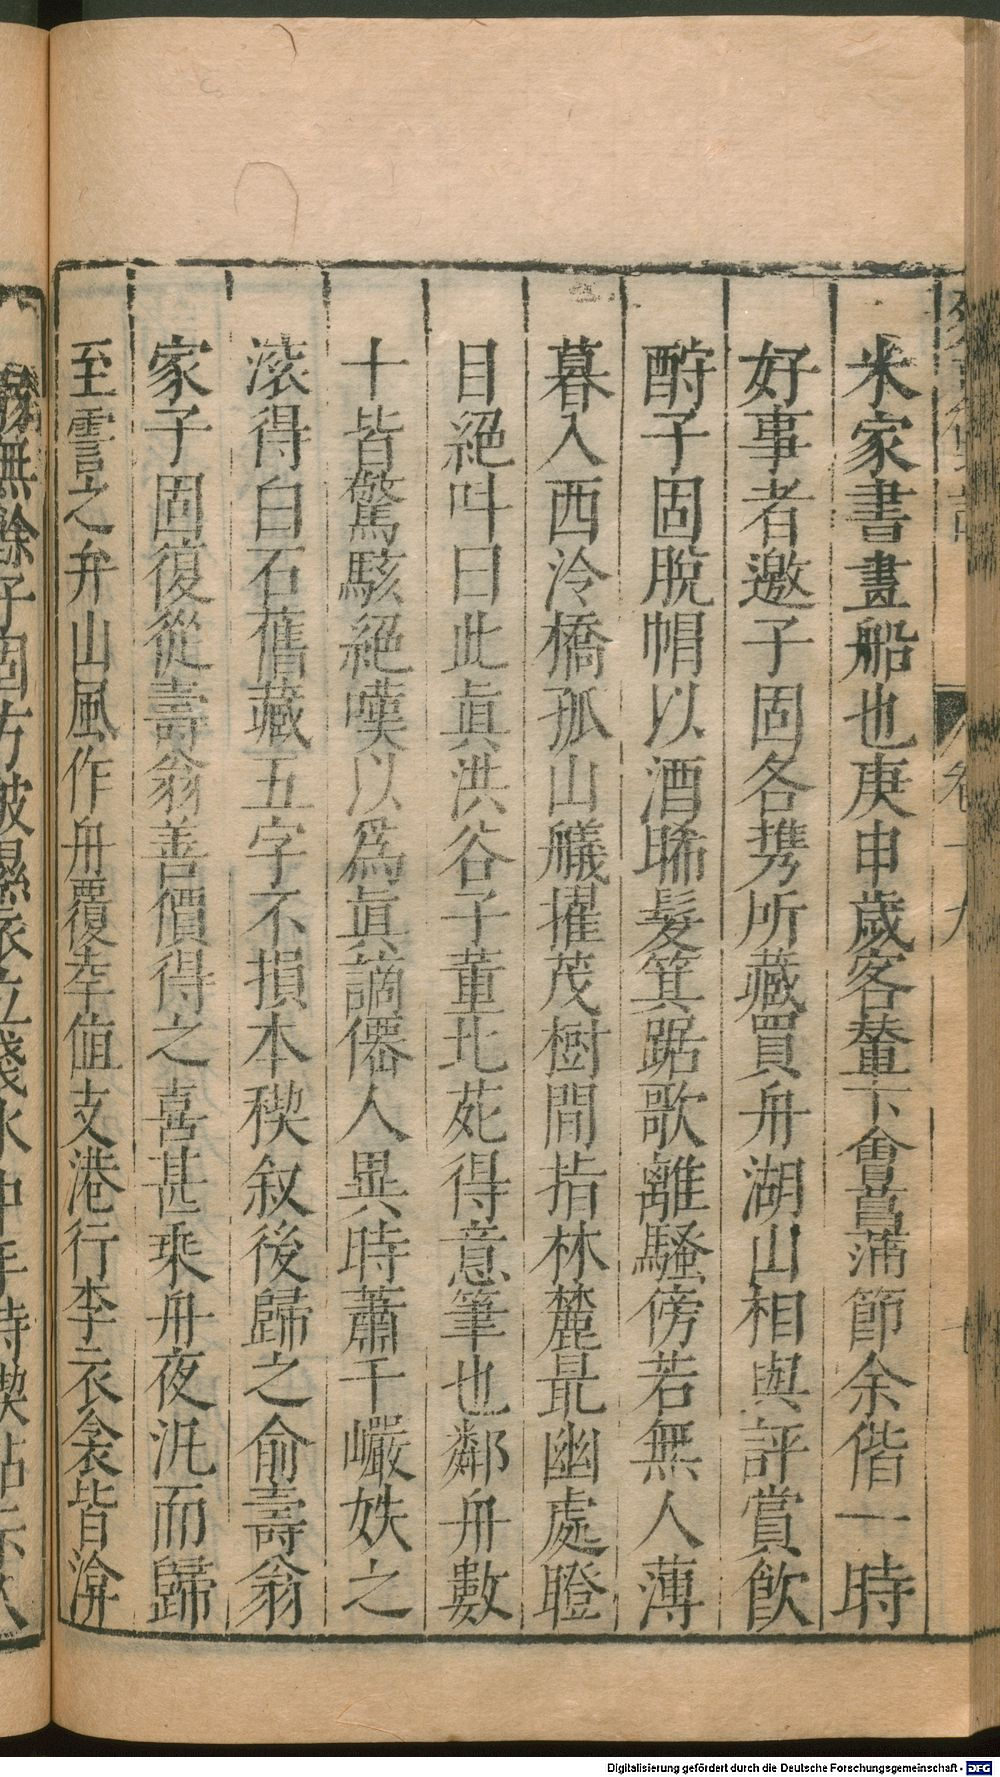 米家書畫船也庚申歲客輦下會菖蒲節余偕一時
好事者邀子固各携所藏買舟湖山相與評賞飲
酣子固脫帽以酒晞髮箕踞歌離騷傍若無人薄
暮入西泠橋孤山艤擢茂樹間指林麓最幽處瞪
目絕呌曰此眞洪谷子董北苑得意筆也鄰舟數
十皆驚駭絕嘆以爲眞謫僊人異時蕭千巖姪之
滚得自石舊藏五字不損本稧叙後歸之俞壽翁
家子固復從壽翁善價得之喜甚乘舟夜泛而歸
至霅之弁山風作舟覆幸值支港行李衣衾皆渰
卷十九
Digitalisierung gefördert durch die Deutsche Forschungsgemeinschaft - DFG